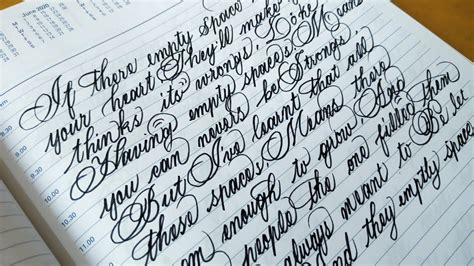 June 2020
If there empty space
your heart They'll make you
thinks it's wrongs, Like
Having empty spaces, Means
you can nevers be Strongs,
But I've learnt that all
these spaces, Means there
enough to grow, And
people the one filling them
always meant to Be let
and they empty space
9.30
10.00
10.30
11.00